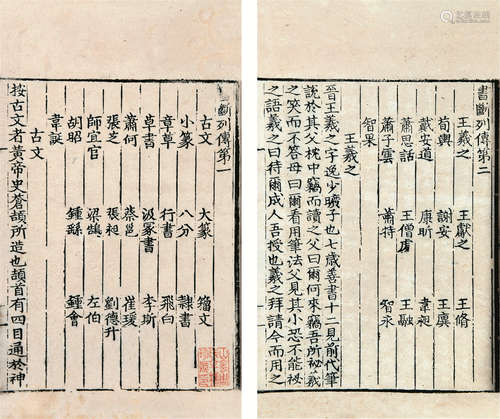 斷列傳第一
古文 大篆 籀文
小篆 八分 隸書
章草 行書 飛白
草書 汲冢書 李斯
蕭何 蔡邕 崔瑗
張芝 張昶 劉德升
師宜官 梁鵠 左伯
胡昭 鍾繇 鍾會
韋誕
古文
按古文者黃帝史蒼頡所造也頡首有四目通於神
書斷列傳第二
王羲之 王獻之 王脩
荀輿 謝安 王廙
戴安道 康昕 韋昶
蕭思話 王僧虔 王融
蕭子雲 蕭特 智永
智果
王羲之
晉王羲之字逸少曠子也七歲善書十二見前代筆
說於其父枕中竊而讀之父曰爾何來竊吾所祕羲
之笑而不答母曰爾看用筆法父見其小恐不能祕
之語羲之曰待爾成人吾授也羲之拜請今而用之